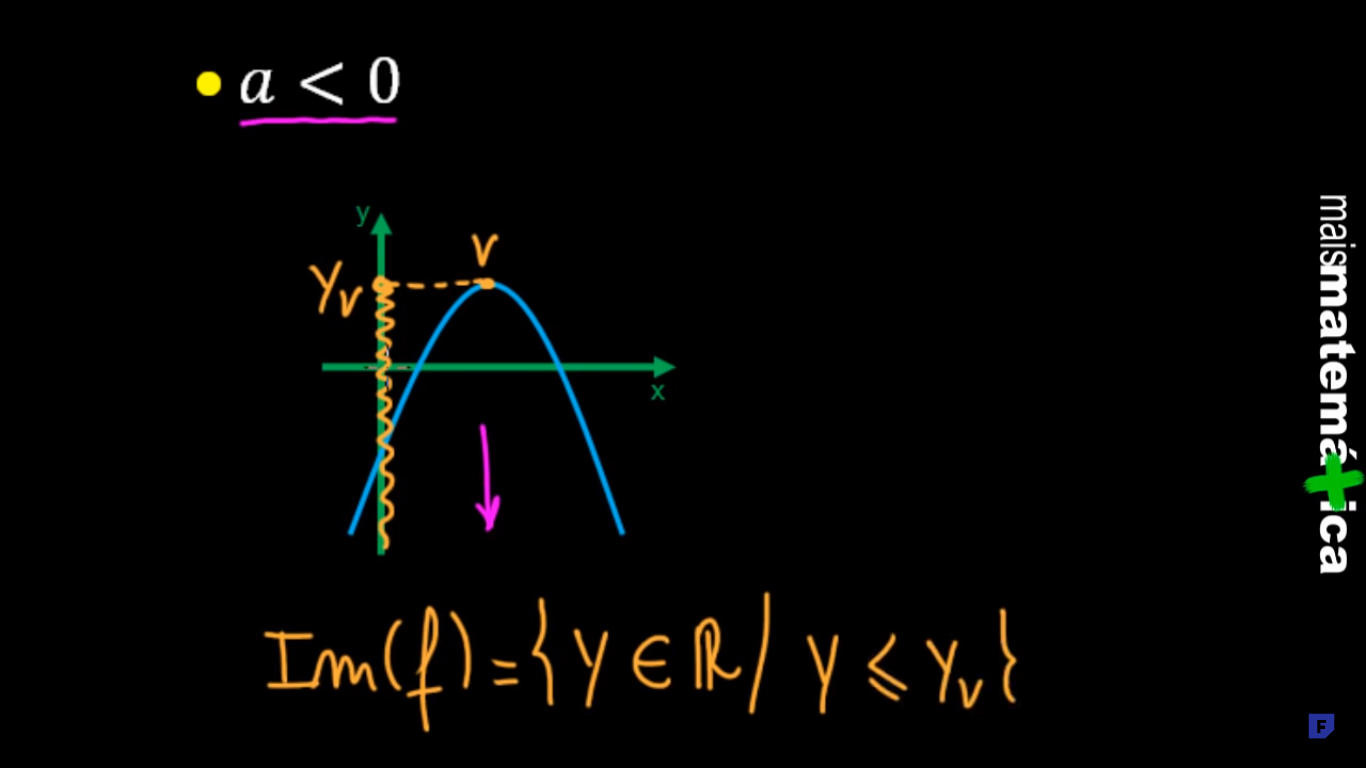 a < 0
y
V
Yv
x
Im(f) = {Y ∈ ℝ / Y ⩽ Yv}
maismatemática
F